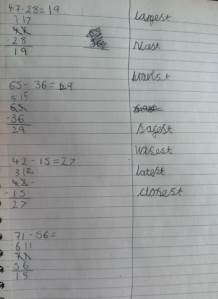 47-28=19
3 17
47
28
19
65-36=29
5 15
65
-36
29
42-15=27
3 12
42
-15
27
71-56=
6 11
71
56
15
largest
nicest
bravest
safest
wisest
latest
closest